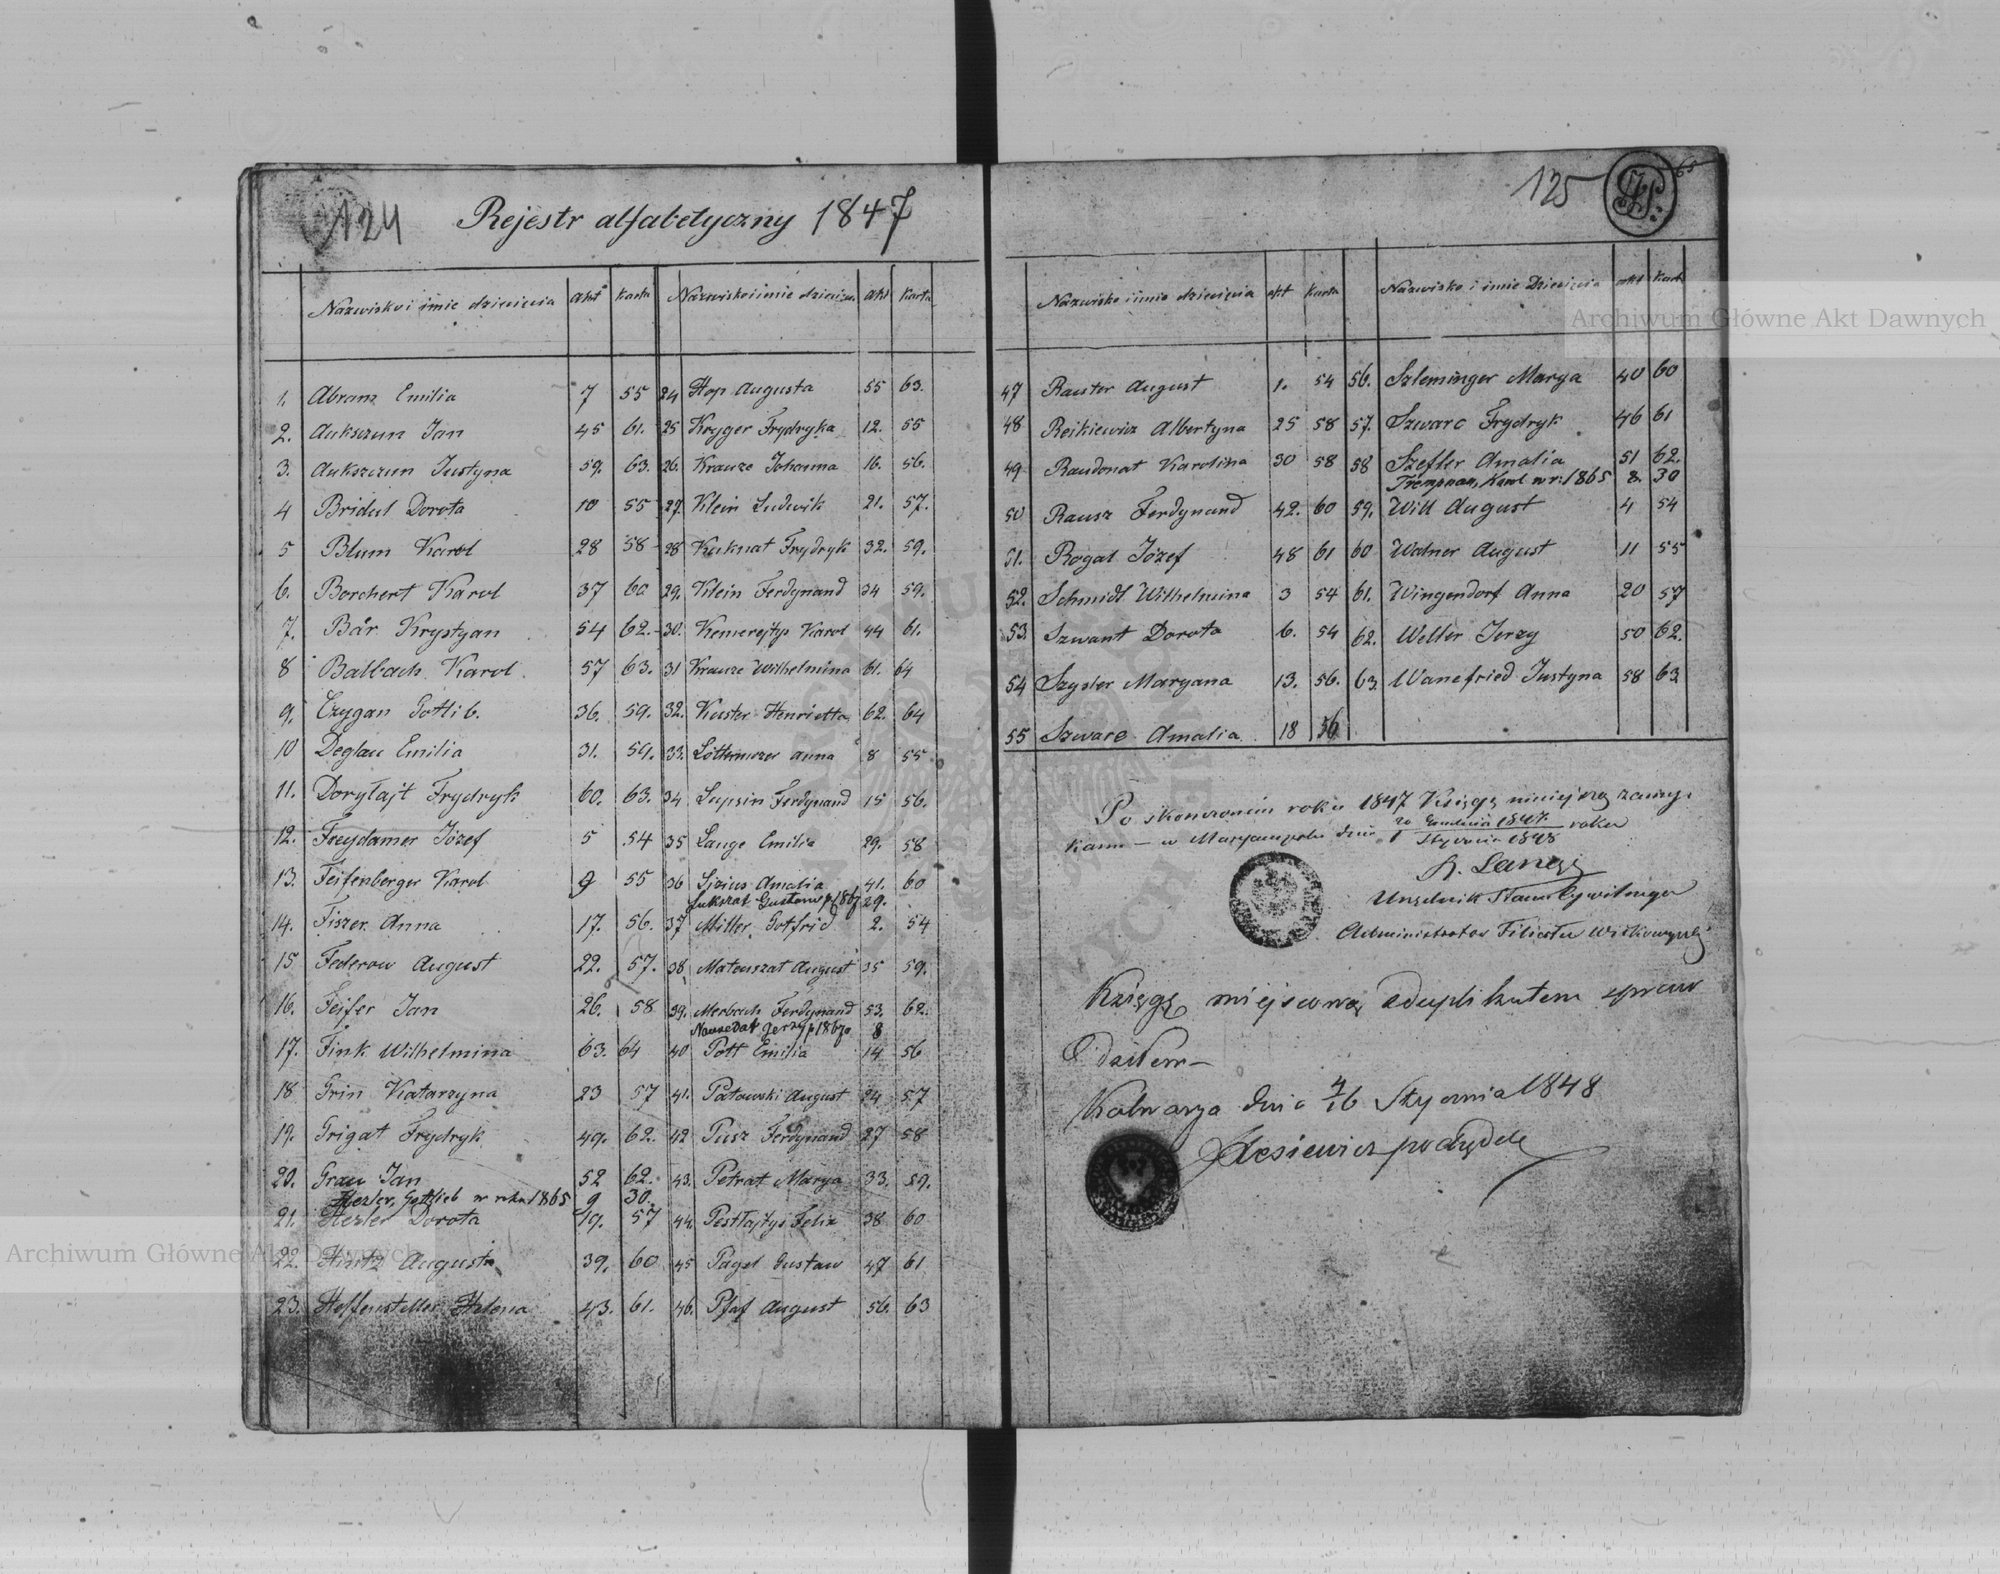 124
Rejestr alfabetyczny 1847
Nazwisko i imie dziecięcia akt karta
1. Abranz Emilia 7 55
2. Aukszun Jan 45 61.
3. Aukszczun Justyna 59. 63.
4 Bridul Dorota 10 55
5 Blum Karol 28 58
6. Borchert Karol 37 60
7. Bär Krystyan 54 62.
8 Balbach Karol 57 63.
9. Czygan Gottlib. 36. 59.
10 Deglau Emilia 31. 59.
11. Dorytajt Frydryk 60. 63.
12. Freydamer Józef 5 54
13. Feifenberger Karol 9 55
14. Fiszer Anna 17. 56.
15. Federau August 22. 57.
16. Feifer Jan 26. 58
17. Fink Wilhelmina 63. 64
18 Grin Katarzyna 23 57
19. Grigat Frydryk 49. 62.
20. Grau Jan 52 62.
Hezler, Gottlieb w roku 1865 9 30.
21. Hezler Dorota 19. 57
22. Hintz Augusta 39. 60
23. Heffensteller Helena 43. 61.
Nazwisko i imie dziecięcia akt karta
24 Hop Augusta 55 63.
25 Kryger Frydryka 12. 55
26. Krauze Johanna 16. 56.
27. Klein Ludwik 21. 57.
28 Kuknat Frydryk 32. 59.
29. Klein Ferdynand 34 59.
30. Kemerejtys Karol 44 61.
31 Krauze Wilhelmina 61. 64
32. Kuster Henrietta 62. 64
33. Anna 8 55
34 Lupsin Ferdynand 15 56.
35 Lange Emilia 29. 58
36 Amalia 41. 60
Gustaw 29.
37 Miller Gotfrid 2. 54
38. Mateuszat August 35 59.
39. Merbach Ferdynand 53. 62.
Jerzy 8
40 Pott Emilia 14 56
41. Patowski August 24 57
42 Pusz Ferdynand 27 58
43. Petrat Marya 33. 59.
44. Pestlajtys Felix 38 60
45 Pagel Gustaw 47 61
46. Pfaf August 56. 63
125
65
Nazwisko i imie dziecięcia akt karta
47 Rauter August 1. 54
48 Reikiewicz Albertyna 25 58
49 Raudonat Karolina 30 58
50 Rausz Ferdynand 42. 60
51. Rogal Józef 48 61
52. Schmidt Wilhelmina 3 54
53. Szwant Dorota 6. 54
54 Szysler Maryana 13. 56.
55 Szwarc Amalia 18 56
Nazwisko i imie Dziecięcia akt karta
56. Szleminger Marya 40 60
57. Szwarc Frydryk 46 61
58 Szefler Amalia 51 62.
Trempnau, Karol w r: 1865 8. 30
59. Will August 4 54
60 Walner August 11 55
61. Wingendorf Anna 20 57
62. Weller Jerzy 50 62.
63 Wanefried Justyna 58 63
Po skonczeniu roku 1847 Księgę niniejszą zamy-
kam – w Maryampolu dnia 20 Grudnia 1847 / 1 Stycznia 1848 roku
Urzędnik Stanu Cywilnego
Administrator Filiału
Księgę miejscową z duplikatem sprawdziłem –
Kalwarya dnia 4/16 Stycznia 1848
Archiwum Główne Akt Dawnych
Archiwum Główne Akt Dawnych